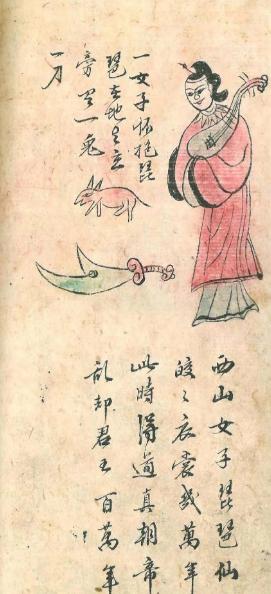 一女子怀抱琵
琶在地上立
旁一兔
一刀
西山女子琵琶仙
皎々衣裳萬年
此時得道真朝帝
乱却君王百萬年